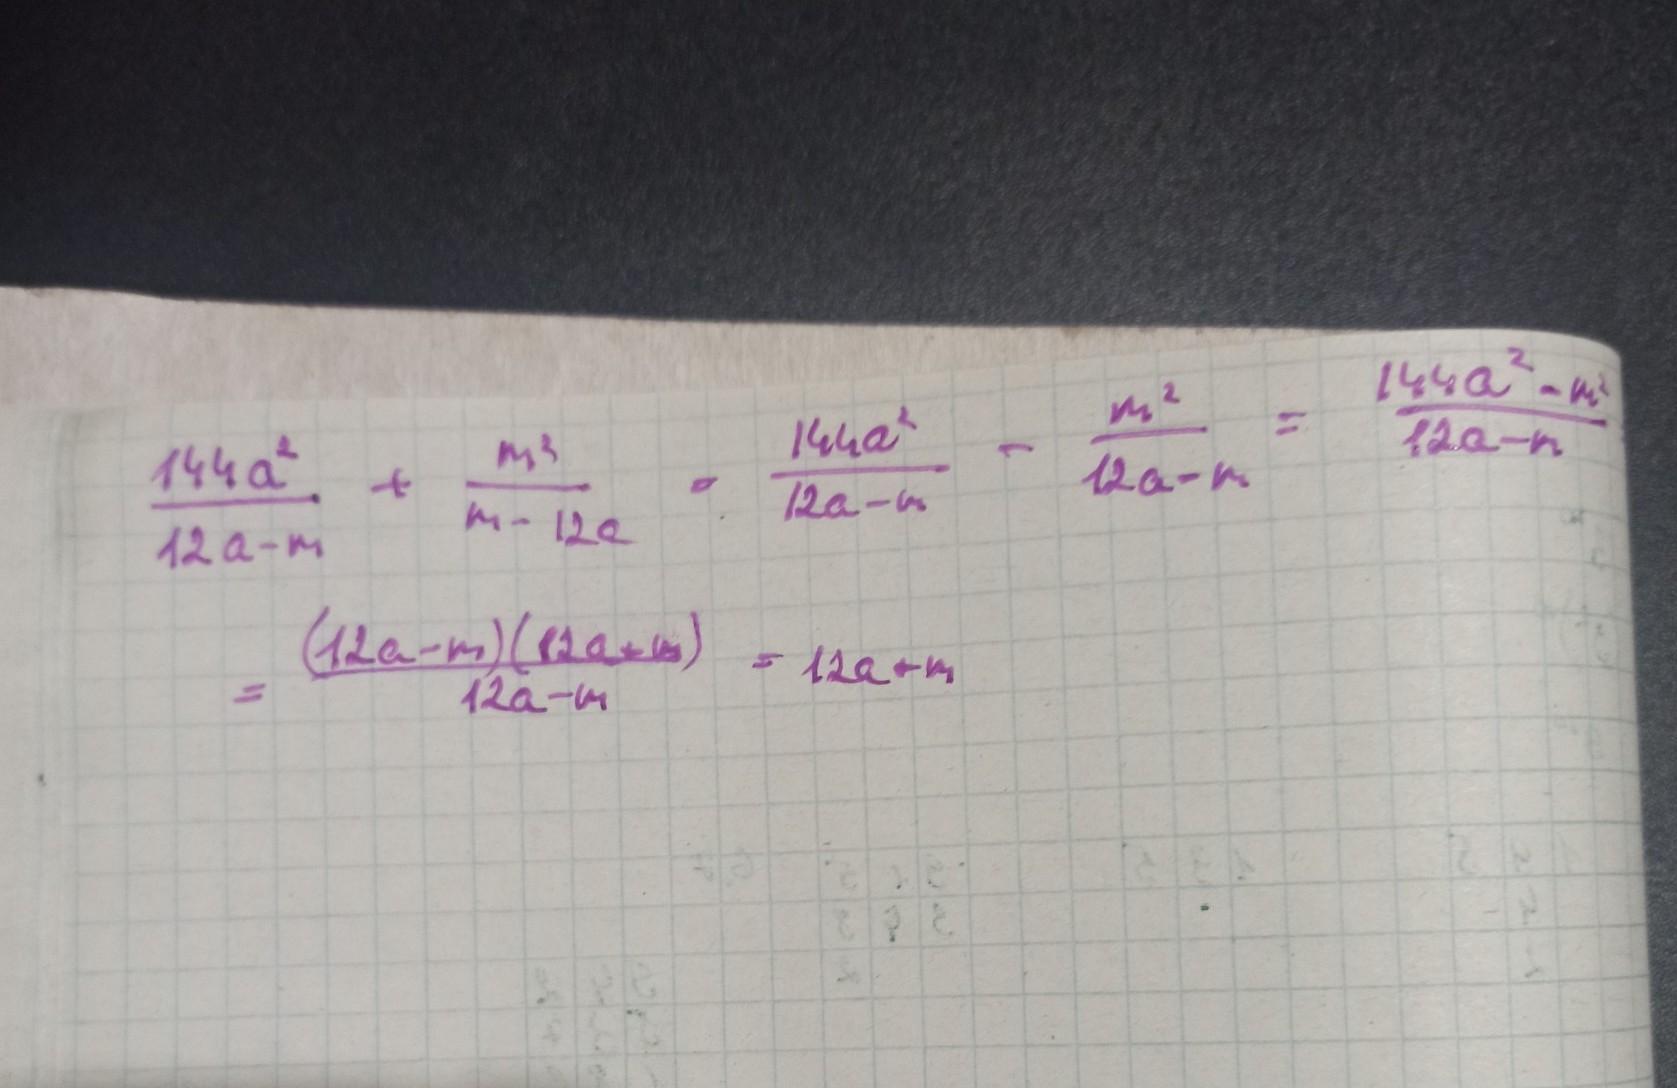 144a²/(12a-m) + m²/(m-12a) = 144a²/(12a-m) - m²/(12a-m) = (144a²-m²)/(12a-m)
= (12a-m)(12a+m)/(12a-m) = 12a+m